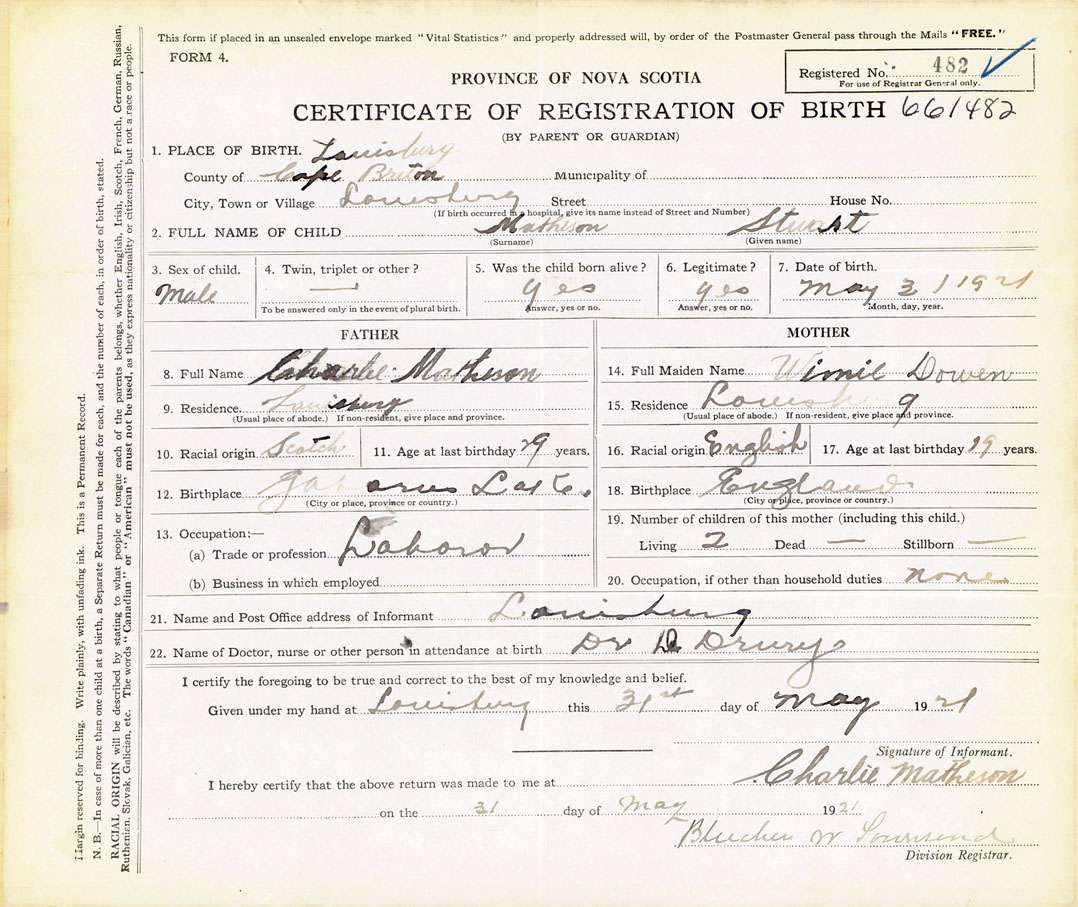 This form if placed in an unsealed envelope marked "Vital Statistics" and properly addressed will, by order of the Postmaster General pass through the Mails "FREE."
FORM 4.
Registered No. 482
For use of Registrar General only.
PROVINCE OF NOVA SCOTIA
CERTIFICATE OF REGISTRATION OF BIRTH 661482
(BY PARENT OR GUARDIAN)
1. PLACE OF BIRTH. Louisburg
County of Cape Breton Municipality of
City, Town or Village Louisburg Street House No.
(If birth occurred in a hospital, give its name instead of Street and Number)
2. FULL NAME OF CHILD Matheson Stuart
(Surname) (Given name)
3. Sex of child. 4. Twin, triplet or other? 5. Was the child born alive? 6. Legitimate? 7. Date of birth.
Male — yes yes May 31 1921
To be answered only in the event of plural birth. Answer, yes or no. Answer, yes or no. Month, day, year.
FATHER
8. Full Name Charlie Matheson
9. Residence. Louisburg
(Usual place of abode.) If non-resident, give place and province.
10. Racial origin Scotch 11. Age at last birthday 29 years.
12. Birthplace
(City or place, province or country.)
13. Occupation:—
(a) Trade or profession Laboror
(b) Business in which employed
MOTHER
14. Full Maiden Name Winnie Dowen
15. Residence Louisburg
(Usual place of abode.) If non-resident, give place and province.
16. Racial origin English 17. Age at last birthday 19 years.
18. Birthplace England
(City or place, province or country.)
19. Number of children of this mother (including this child.)
Living 2 Dead — Stillborn —
20. Occupation, if other than household duties none
21. Name and Post Office address of Informant Louisburg
22. Name of Doctor, nurse or other person in attendance at birth Dr Drury
I certify the foregoing to be true and correct to the best of my knowledge and belief.
Given under my hand at Louisburg this 31st day of May 1921
Signature of Informant.
Charlie Matheson
I hereby certify that the above return was made to me at
on the 31 day of May 1921
W Townsend
Division Registrar.
Margin reserved for binding. Write plainly, with unfading ink. This is a Permanent Record.
N. B.—In case of more than one child at a birth, a Separate Return must be made for each, and the number of each, in order of birth, stated.
RACIAL ORIGIN will be described by stating to what people or tongue each of the parents belongs, whether English, Irish, Scotch, French, German, Russian,
Ruthenian, Slovak, Galician, etc. The words "Canadian" or "American" must not be used, as they express nationality or citizenship but not a race or people.